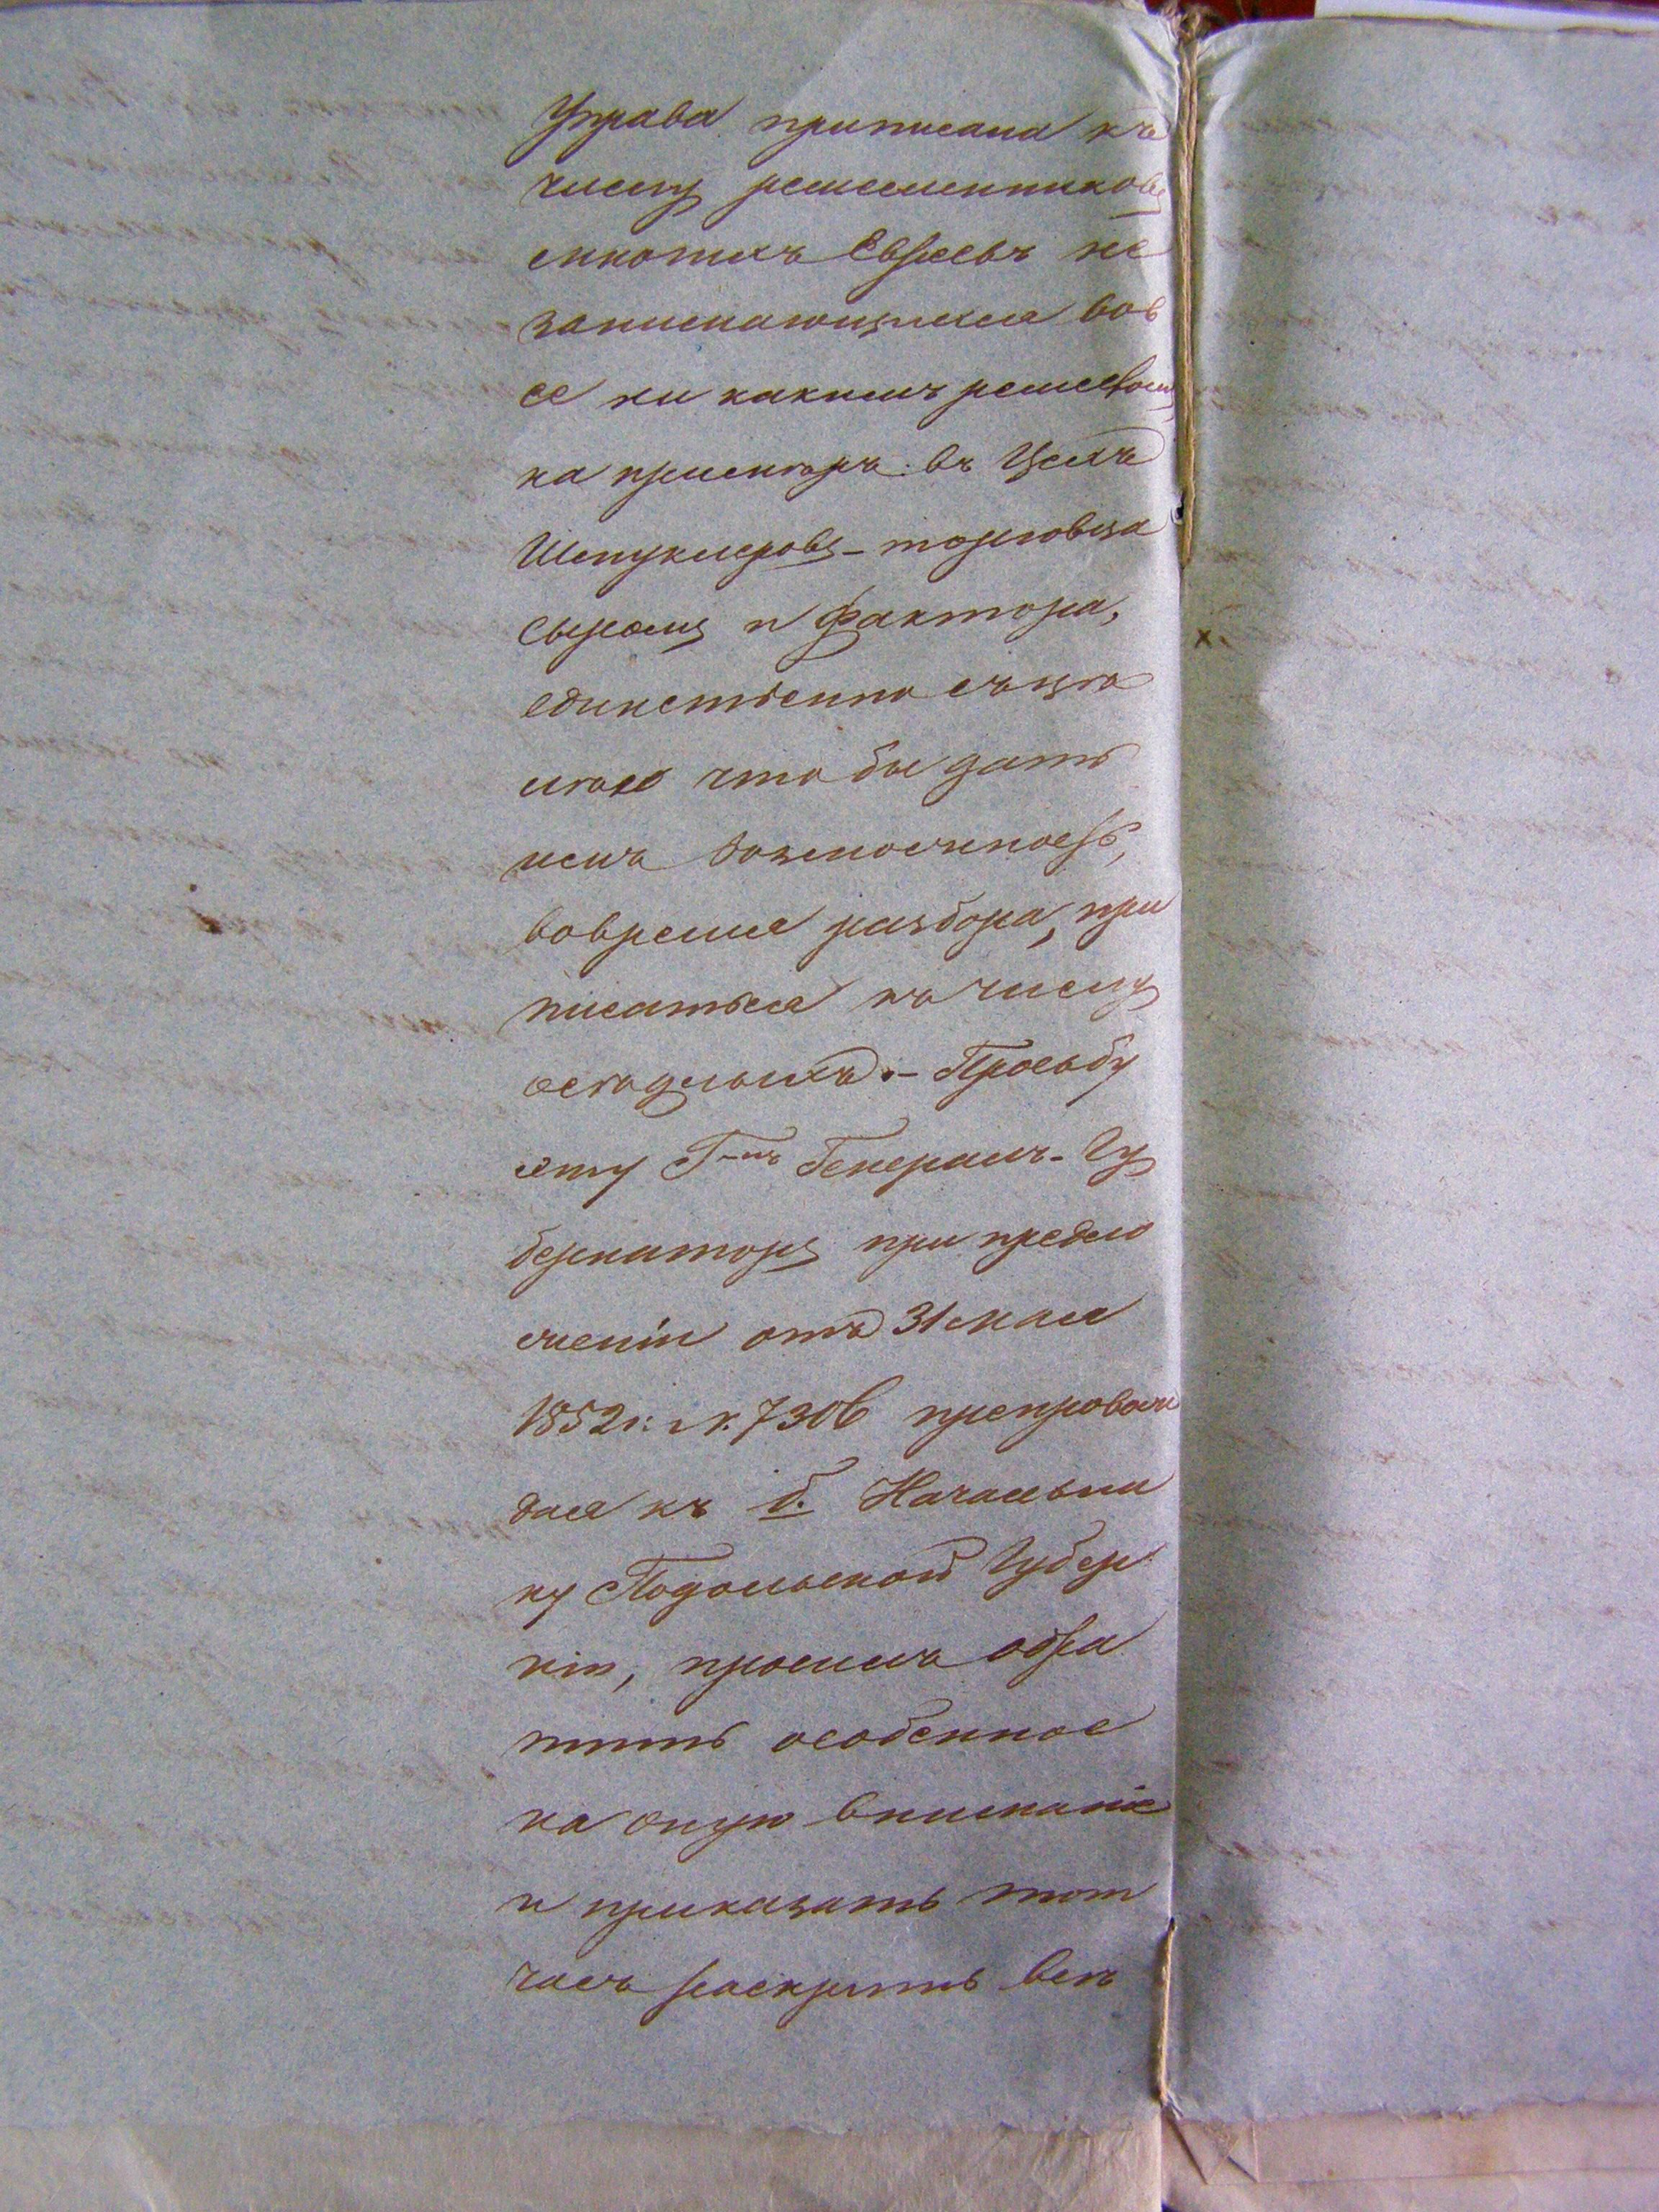 Управа приписала къ
числу ремесленниковъ
многихъ Евреевъ не
занимающихся вов
се ни какимъ ремесломъ
на примѣръ: въ Цехъ
Шмуклеровъ – торговца
сыромъ и фактора,
единственно съ цѣ
лью что бы дать
имъ возможность,
вовремя разбора, при
писаться къ числу
осѣдлыхъ. – Просьбу
эту Г–нъ Генералъ-Гу
бернаторъ при предло
женіи отъ 31 мая
1852 г: № 7306 препровож
дая къ б. Начальни
ку Подольской Губер
ніи, просилъ обра
тить особенное
на оную вниманіе
и приказать тот
часъ раскрыть всѣ